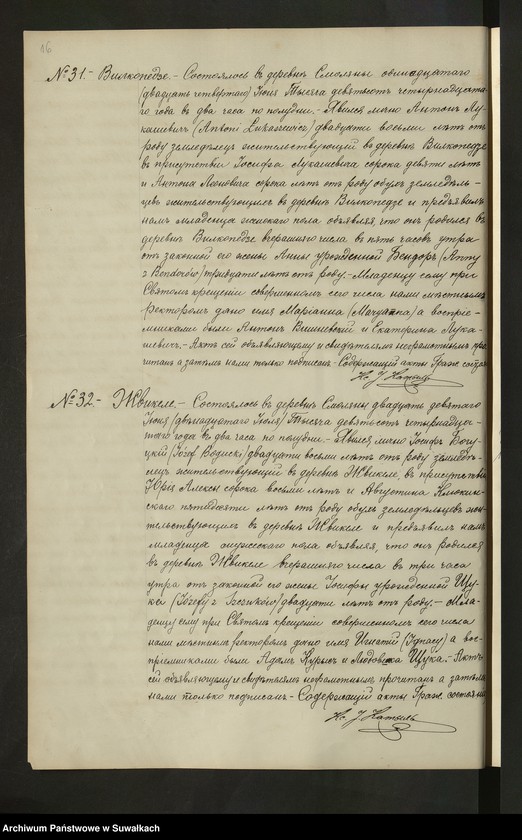 16
№31.- Вилкопедзе.- Состоялось въ деревнѣ Смоляны одинадцатаго
(двадцать четвертаго) Іюня Тысяча девятьсотъ четырнадцата-
го года въ два часа по полудни.- Явился лично Антонъ Лу-
кашевичъ (Antoni Łukaszewicz) двадцати восьми лѣтъ отъ
роду земледѣлецъ жительствующій въ деревнѣ Вилкопедзе
въ присутствіи Іосифа Лукашевича сорока девяти лѣтъ
и Антона сорока лѣтъ отъ роду обухъ земледѣль-
цевъ жительствующихъ въ деревнѣ Вилкопедзе и предъявилъ
намъ младенца женскаго пола объявляя, что онъ родился въ
деревнѣ Вилкопедзе вчерашняго числа въ пять часовъ утра
отъ законной его жены Анны урожденной Бендоръ (Anny
z) тридцати лѣтъ отъ роду.- Младенцу сему при
Святомъ крещеніи совершенномъ сего числа нами мѣстнымъ
Ректоромъ дано имя Маріанна (Maryanna) а воспріе-
мниками были Антонъ Вишневскій и Екатерина Лука-
шевичъ.- Актъ сей объявляющему и свидѣтелямъ неграмотнымъ про-
читанъ а затѣмъ нами только подписанъ.- Содержащій акты Граж.
№32.- Жвикеле.- Состоялось въ деревнѣ Смоляны двадцать девятаго
Іюня (двѣнадцатаго Іюля) Тысяча девятьсотъ четырнадца-
таго года въ два часа по полудни.- Явился лично Іосифъ
(Józef) двадцати восьми лѣтъ отъ роду земледѣ-
лецъ жительствующій въ деревнѣ Жвикеле, въ присутствіи
Юрія сорока восьми лѣтъ и Августина
пятидесяти лѣтъ отъ роду обухъ земледѣльцевъ жи-
тельствующихъ въ деревнѣ Жвикеле и предъявилъ намъ
младенца мужескаго пола объявляя, что онъ родился
въ деревнѣ Жвикеле вчерашняго числа въ три часа
утра отъ законной его жены Іосифы урожденной Щу-
ка (Józefy z) двадцати лѣтъ отъ роду.- Мла-
денцу сему при Святомъ крещеніи совершенномъ сего числа
нами мѣстнымъ ректоромъ дано имя Игнатій (Ignacy) а вос-
пріемниками были Адамъ и Людовика Щука.- Актъ
сей объявляющему и свидѣтелямъ неграмотнымъ прочитанъ а затѣмъ
нами только подписанъ.- Содержащій акты Граж. состоянія
Archiwum Państwowe w Suwałkach